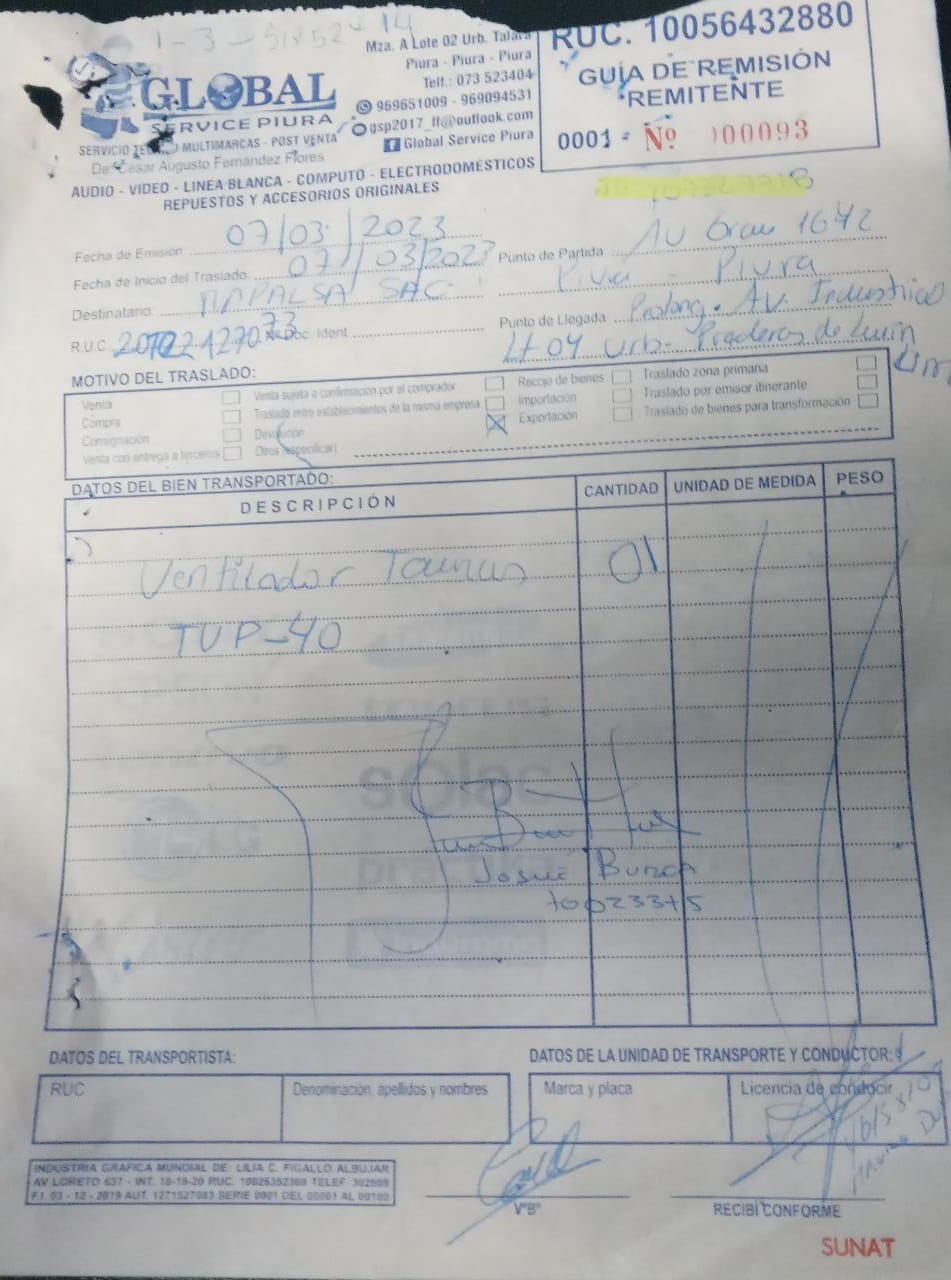 RUC. 10056432880
GUÍA DE REMISIÓN
REMITENTE
0001 - Nº 000093
Mza. A Lote 02 Urb. Talara
Piura - Piura - Piura
Telf.: 073 523404
969651009 - 969094531
gsp2017_ff@outlook.com
Global Service Piura
GLOBAL
SERVICE PIURA
SERVICIO TÉCNICO MULTIMARCAS - POST VENTA
De: César Augusto Fernández Flores
AUDIO - VIDEO - LINEA BLANCA - COMPUTO - ELECTRODOMÉSTICOS
REPUESTOS Y ACCESORIOS ORIGINALES
Fecha de Emisión: 07/03/2023
Fecha de Inicio del Traslado: 07/03/2023
Destinatario: SAC.
R.U.C. Nº Doc. Ident.
Punto de Partida Av Grau 1642
Piura - Piura
Punto de Llegada Prolong. Av. Industrial
Lt 04 Urb. Praderas de Lurin
Lim
MOTIVO DEL TRASLADO:
Venta
Compra
Consignación
Venta con entrega a terceros
Venta sujeta a confirmación por el comprador
Traslado entre establecimientos de la misma empresa
Devolución
Otros (especificar)
Recojo de bienes
Importación
Exportación
Traslado zona primaria
Traslado por emisor itinerante
Traslado de bienes para transformación
DATOS DEL BIEN TRANSPORTADO:
DESCRIPCIÓN CANTIDAD UNIDAD DE MEDIDA PESO
Ventilador Taurus 01
TUP-40
Josue
DATOS DEL TRANSPORTISTA:
RUC
Denominación, apellidos y nombres
DATOS DE LA UNIDAD DE TRANSPORTE Y CONDUCTOR:
Marca y placa
Licencia de conducir
INDUSTRIA GRAFICA MUNDIAL DE: LILIA C. FIGALLO ALBUJAR
AV LORETO 637 - INT. 18-19-20 RUC. 10026352369 TELEF 302909
F.I. 03 - 12 - 2019 AUT. 1271527083 SERIE 0001 DEL 00001 AL 00100
VºBº
RECIBÍ CONFORME
SUNAT